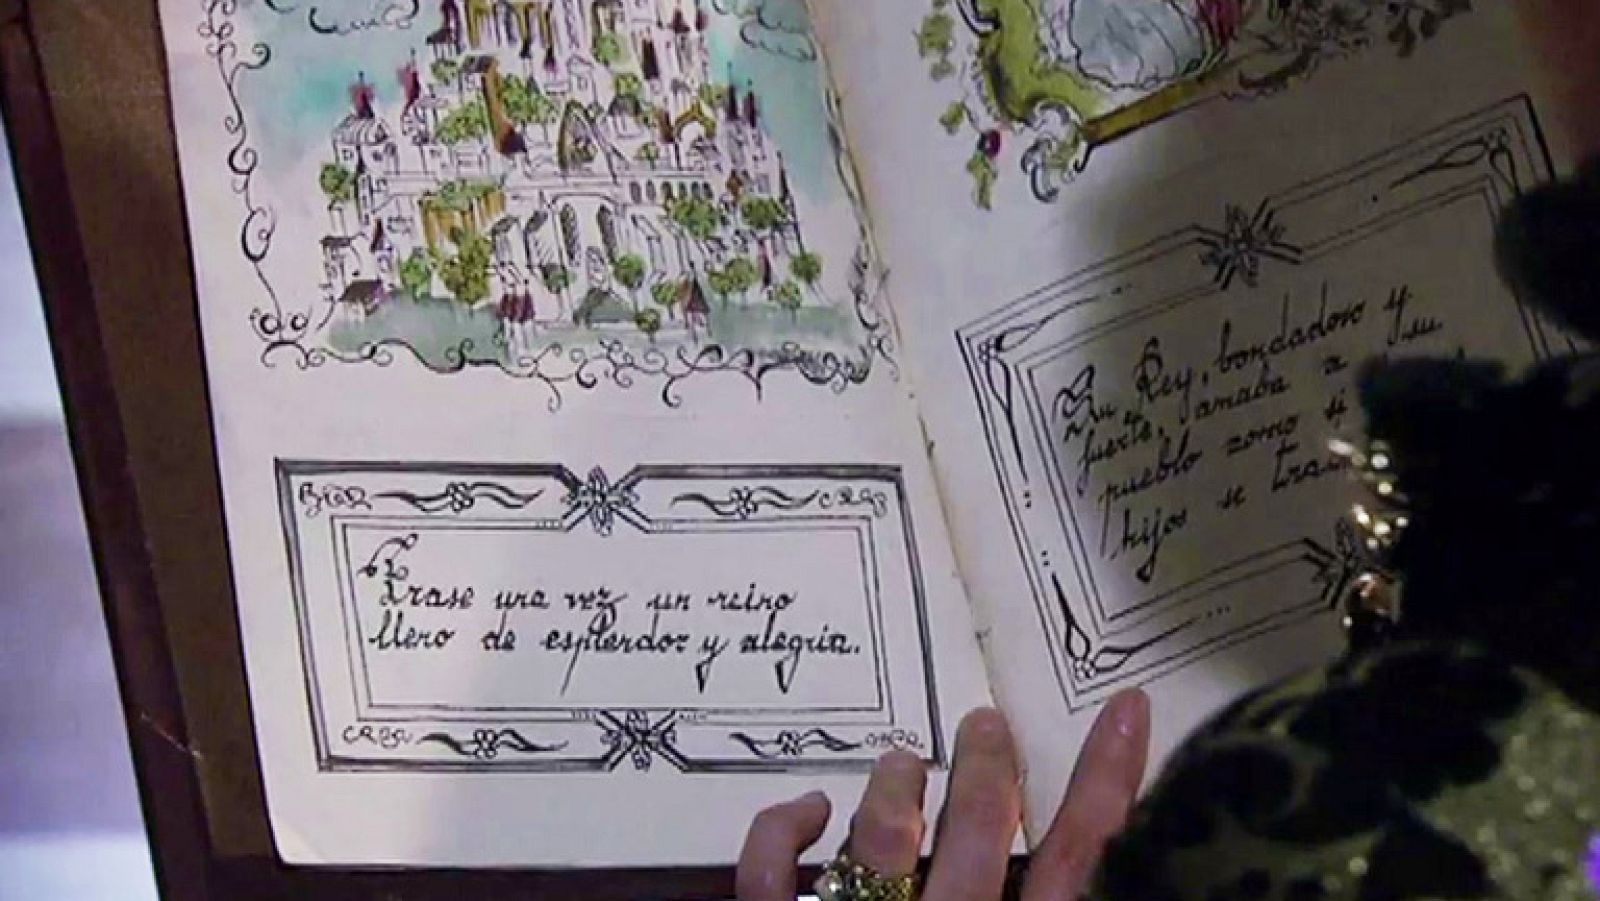 Erase una vez un reino
lleno de esplendor y alegria.
Su Rey, bondadoso y
fuerte, amaba a su
pueblo como si
hijos se tra